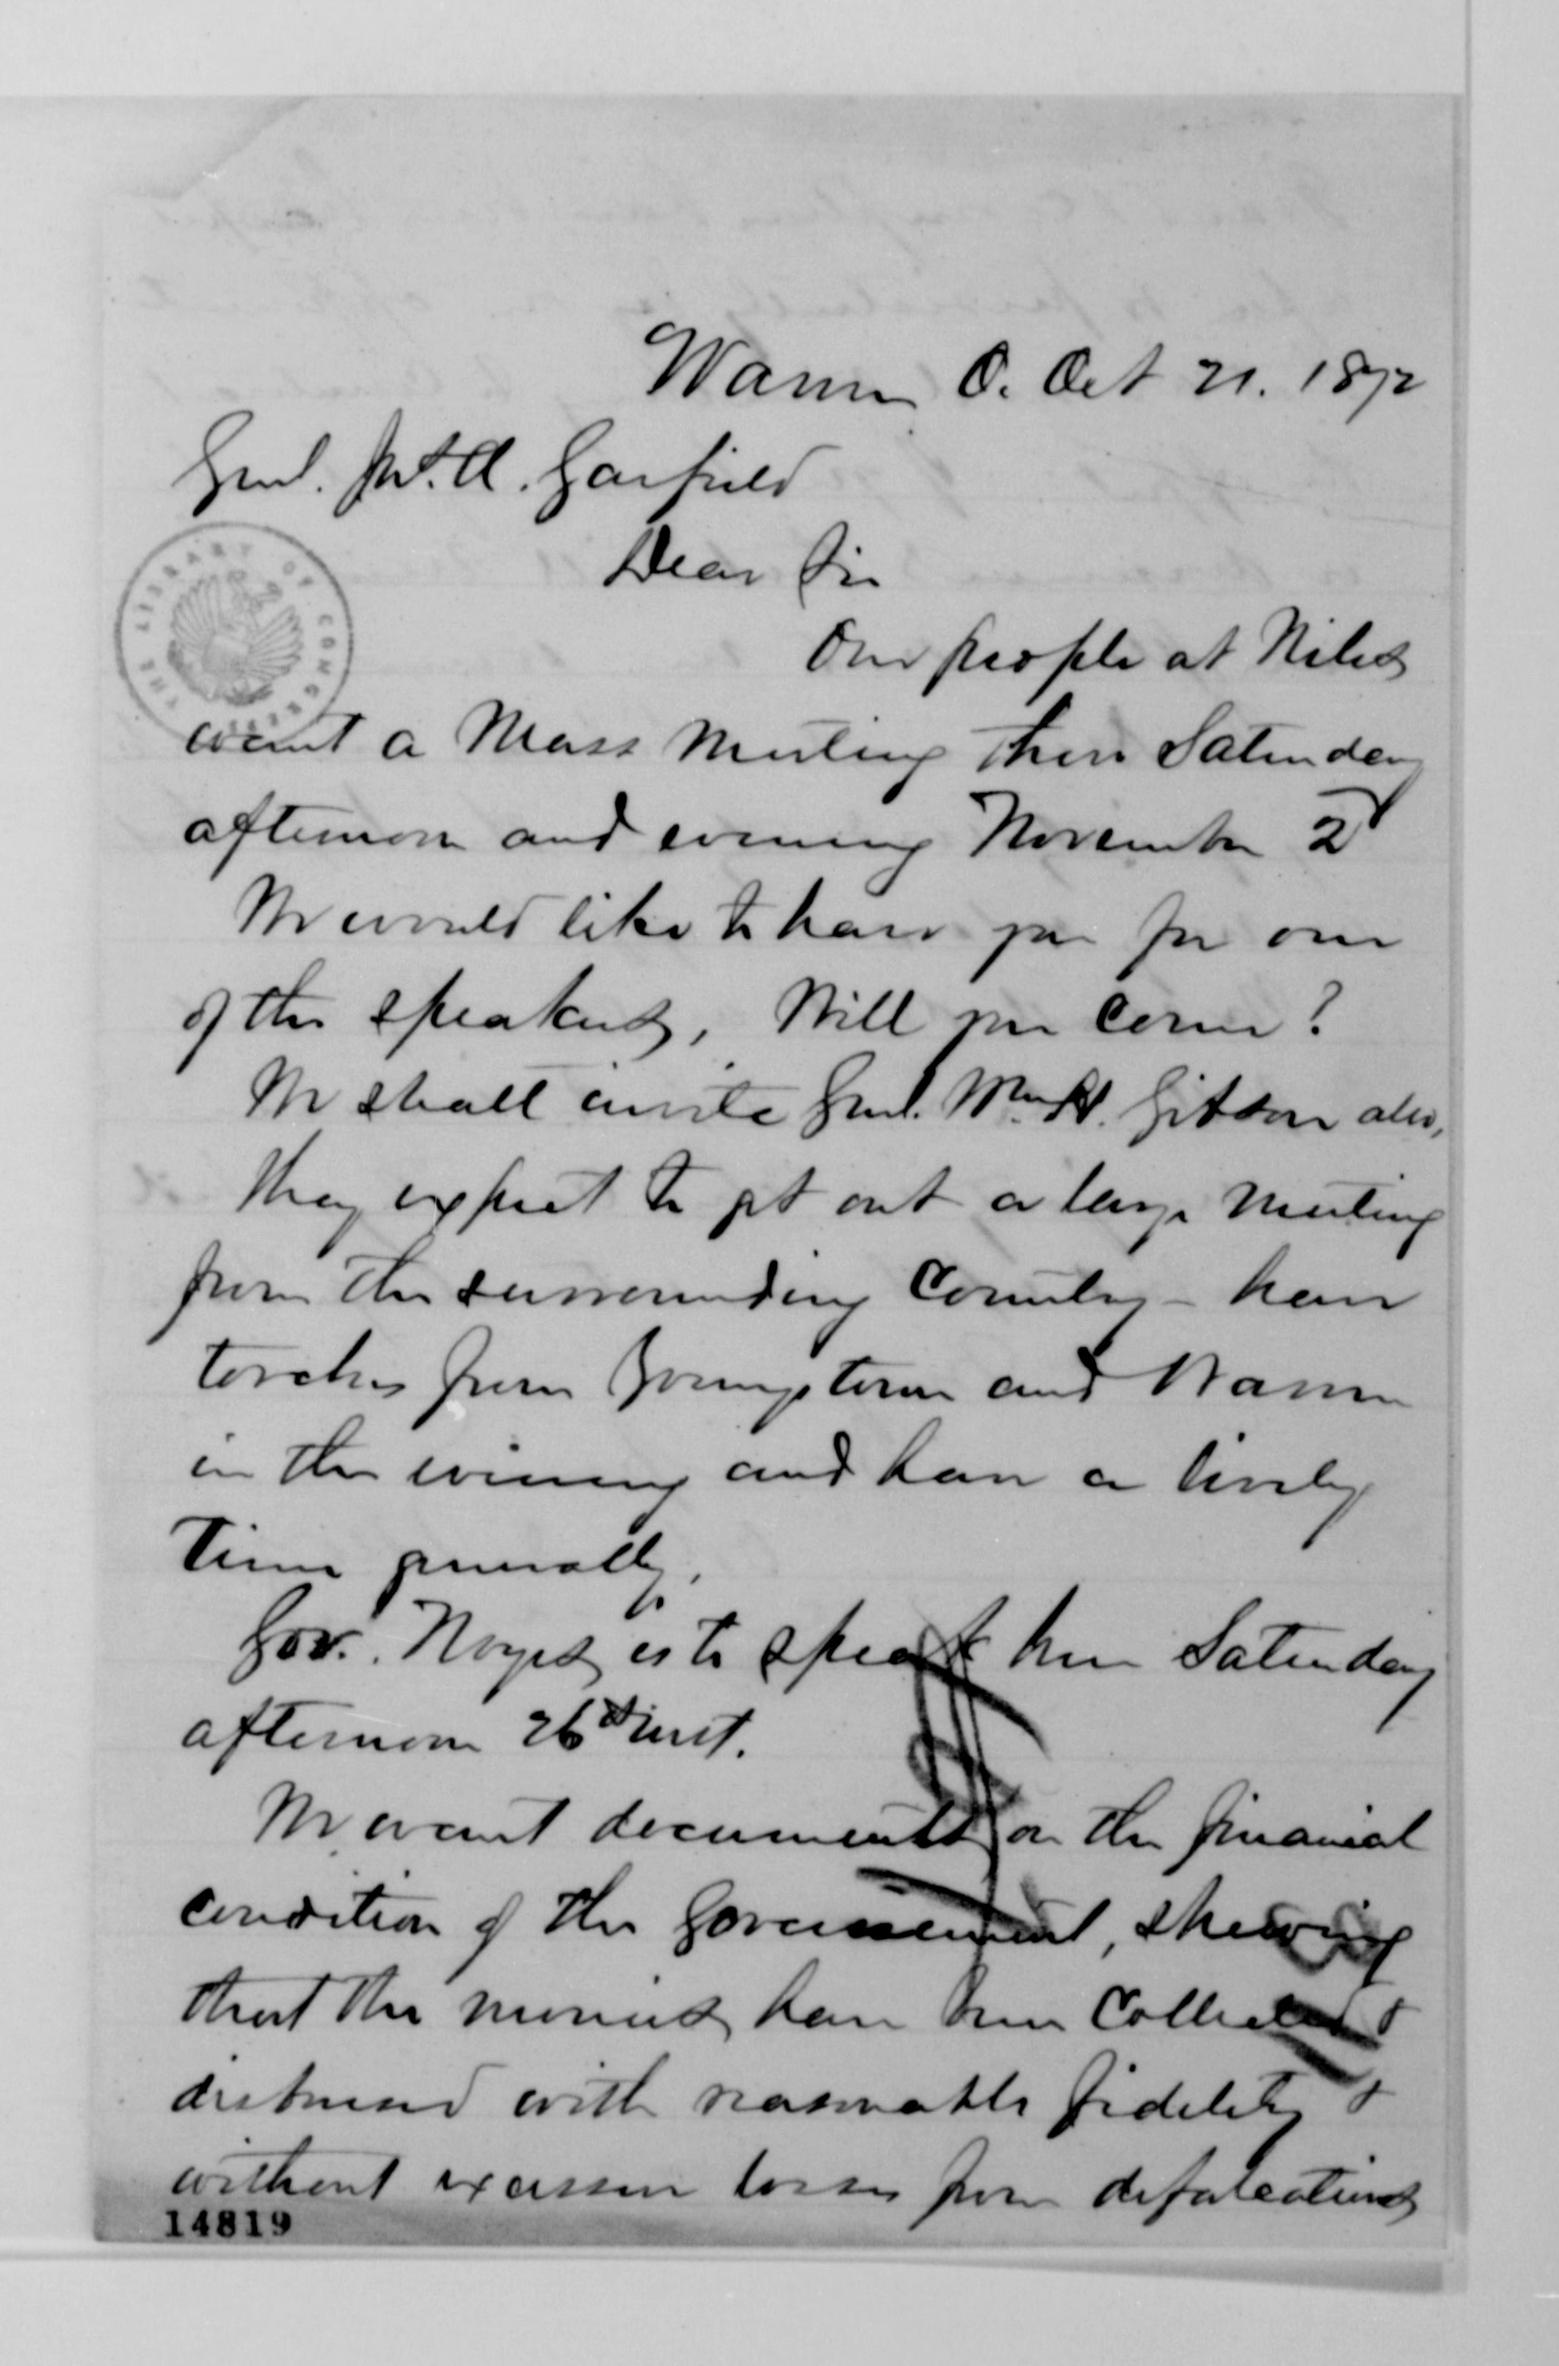 Warren O. Oct 21. 1872
Genl. Jas. A. Garfield
Dear Sir
THE LIBRARY OF CONGRESS
Our people at Niles
want a Mass Meeting there Saturday
afternoon and evening November 2d
We would like to have you for one
of the speakers, Will you come?
We shall invite Genl. Wm H. Gibson also,
They expect to get out a large meeting
from the surrounding Country - have
torches from Youngstown and Warren
in the evening and have a lively
time generally.
Gov. Noyes is to speak here Saturday
afternoon 26th inst.
We want documents on the financial
condition of the Government, shewing
that the monies have been Collected &
disbursed with reasonable fidelity &
without excessive losses from defalcations
14819